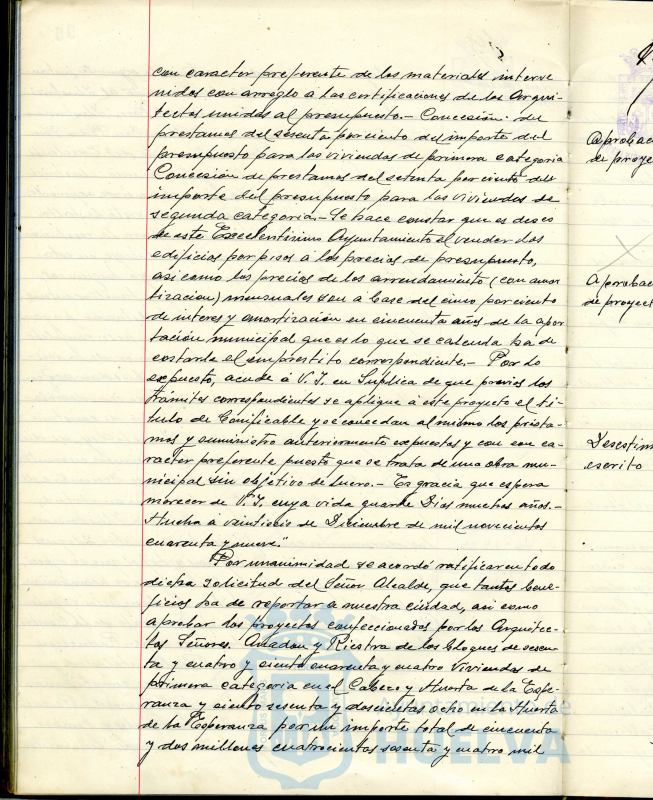 con caracter preferente de los materiales interve
nidos con arreglo á las certificaciones de los Arqui-
tectos unidas al presupuesto.- Concesión de
prestamos del sesenta por ciento del importe del
presupuesto para las viviendas de primera categoria
Concesión de prestamos del setenta por ciento del
importe del presupuesto para las viviendas de
segunda categoria.- Se hace constar que es deseo
de este Excelentísimo Ayuntamiento el vender los
edificios por pisos a los precios de presupuesto,
asi como los precios de los arrendamiento (con amor
tizacion) mensuales son á base del cinco por ciento
de interes y amortización en cincuenta años de la apor
tación municipal que es lo que se calcula ha de
costarle el empréstito correspondiente.- Por lo
expuesto, acude á V. I. en Suplica de que previos los
trámites correspondientes se aplique á este proyecto el tí-
tulo de Bonificable y se concedan al mismo los présta-
mos y suministro anteriormente expuestos y con ca-
racter preferente puesto que se trata de una obra mu-
nicipal sin objetivo de lucro.- Es gracia que espera
merecer de V. I. cuya vida guarde Dios muchos años.-
Huelva á veintiocio de Diciembre de mil novecientos
cuarenta y nueve."
Por unanimidad se acordó ratificar en todo
dicha solicitud del Señor Alcalde, que tantos bene-
ficios ha de reportar a nuestra ciudad, asi como
aprobar los proyectos confeccionados por los Arquitec-
tos Señores Anadon y Riestra de los bloques de sesen-
ta y cuatro y ciento cuarenta y cuatro Viviendas de
primera categoria en el Cabezo y Huerta de la Espe-
ranza y ciento sesenta y doscientas ocho en la Huerta
de la Esperanza por un importe total de cincuenta
y dos millones cuatrocientas sesenta y cuatro mil
Aprobac
de proye
Aprobac
de proyect
Desestim
escrito
HUELVA